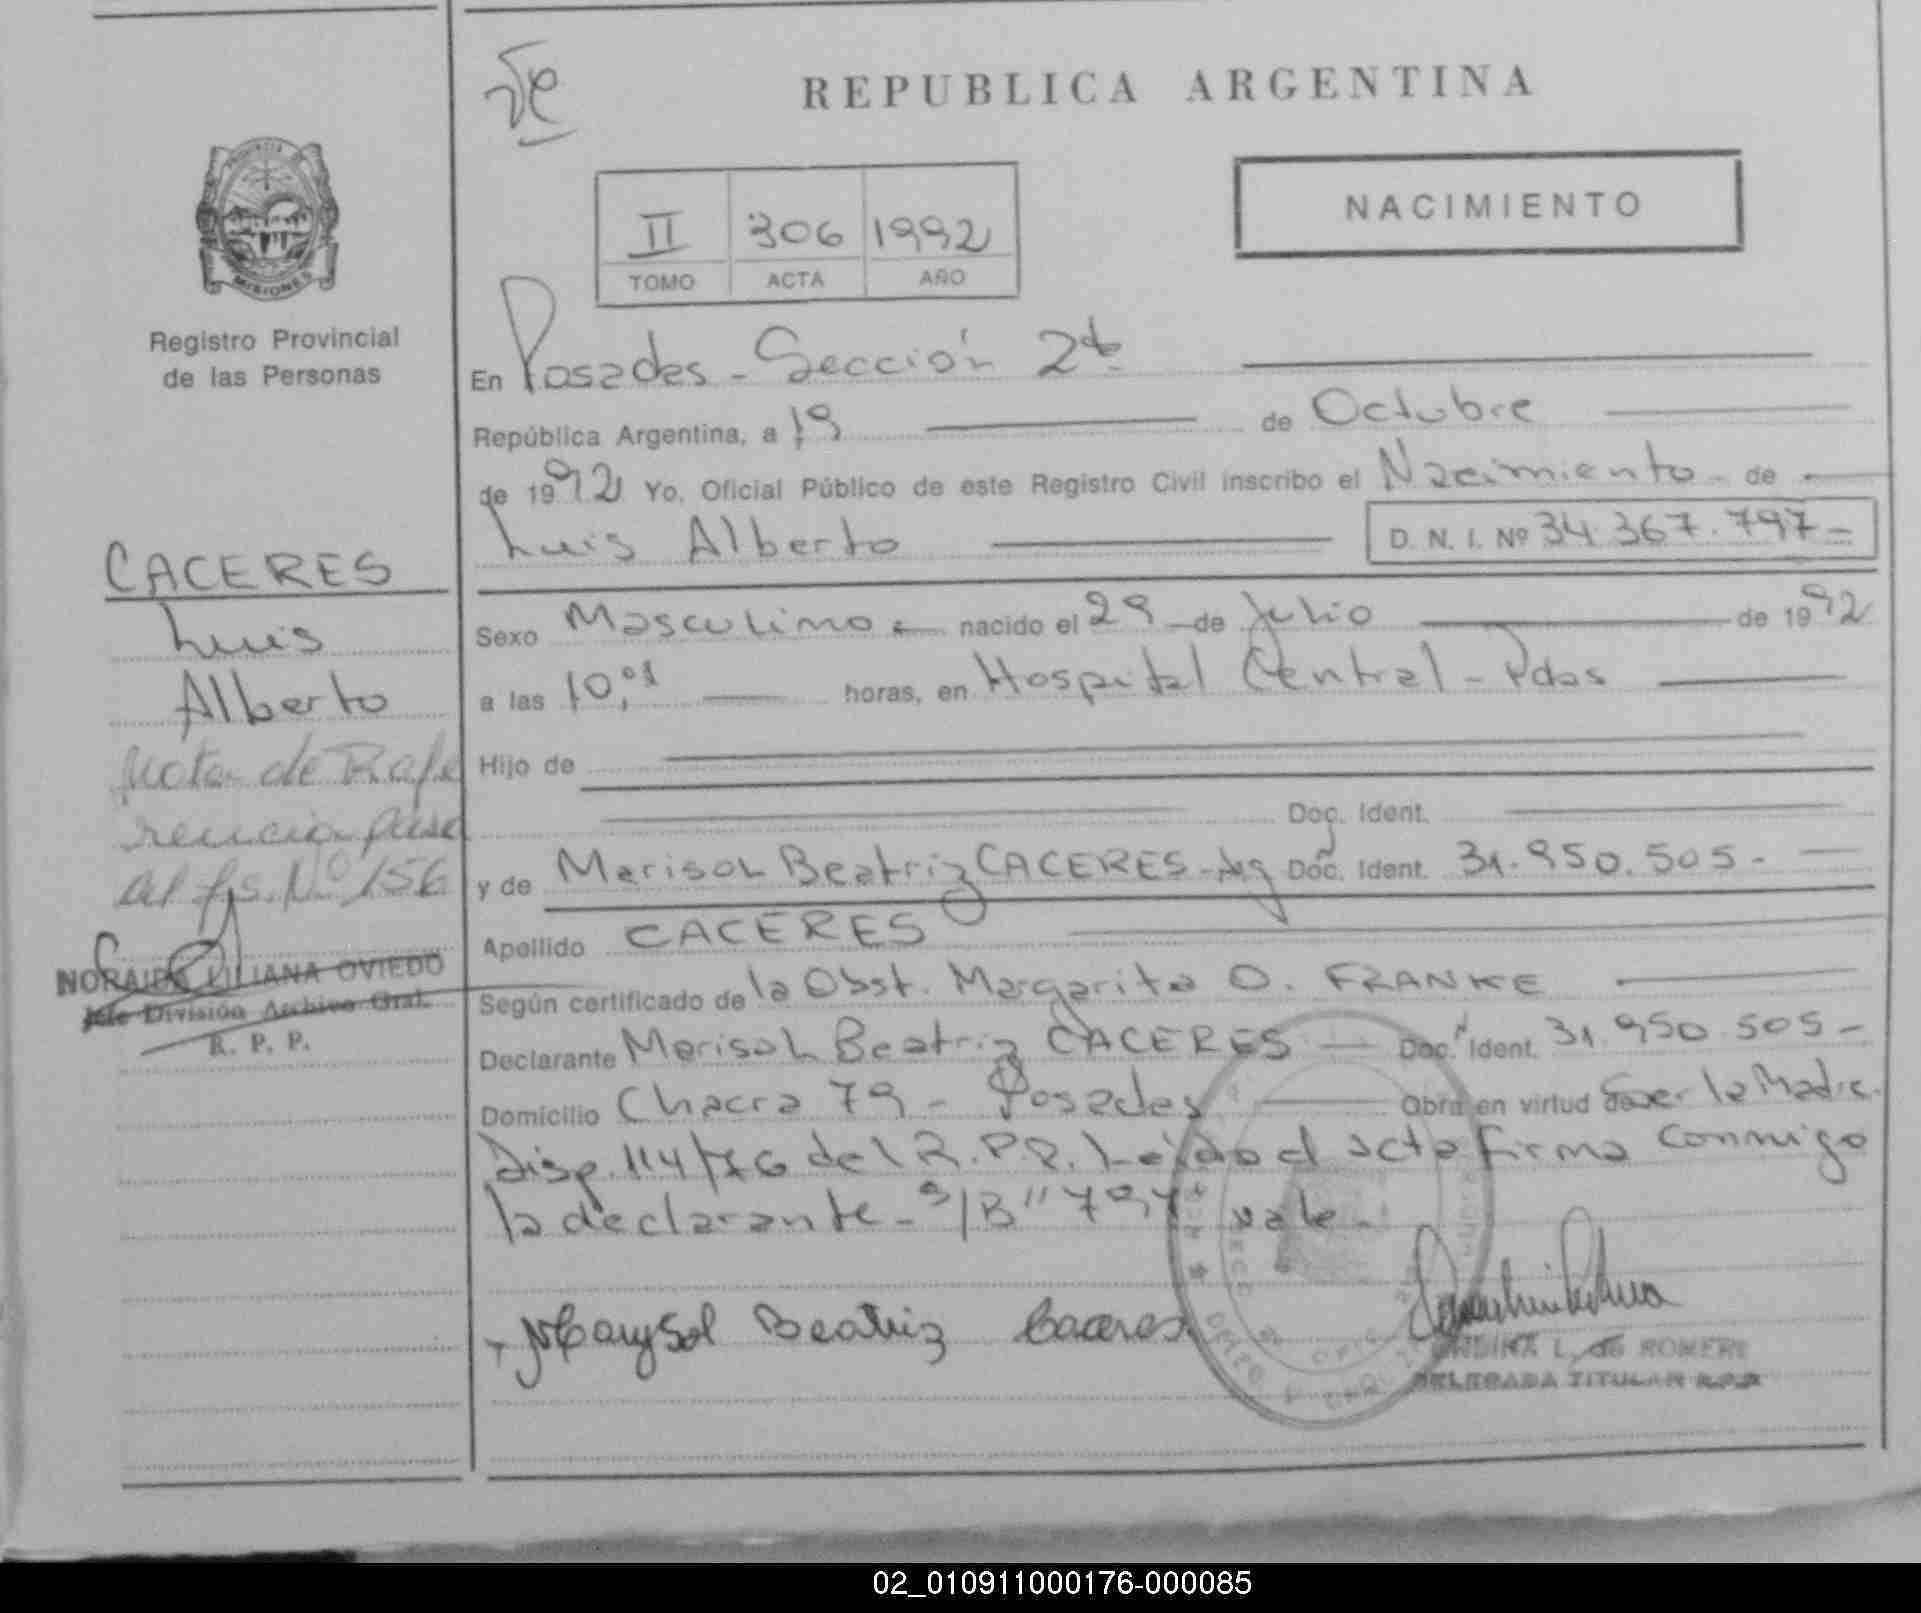 REPUBLICA ARGENTINA
NACIMIENTO
II 306 1992
TOMO ACTA AÑO
PROVINCIA
MISIONES
Registro Provincial
de las Personas
CACERES
Luis
Alberto
Nota de Refe
rencia pasa
al fs. Nº 156
NORAIDA LILIANA OVIEDO
Jefe División Archivo Gral.
R. P. P.
En Posadas - Sección 2da
República Argentina, a 19 de Octubre
de 1992 Yo, Oficial Público de este Registro Civil inscribo el Nacimiento - de
Luis Alberto D. N. I. Nº 34.367.797 -
Sexo Masculino nacido el 29 de Julio de 1992
a las 10,01 horas, en Hospital Central - Pdas
Hijo de
Doc. Ident.
y de Marisol Beatriz CACERES - Arg Doc. Ident. 31.950.505 -
Apellido CACERES
Según certificado de la Obst. Margarita O. FRANKE
Declarante Marisol Beatriz CACERES Doc. Ident. 31.950.505 -
Domicilio Chacra 79 - Posadas Obra en virtud de ser la Madre.
Disp. 114/76 del R.P.P. Leída el acta firma conmigo
la declarante - S/B "797" vale -
Marysol Beatriz Caceres
L. de ROMERO
DELEGADA TITULAR R.P.P
02_010911000176-000085